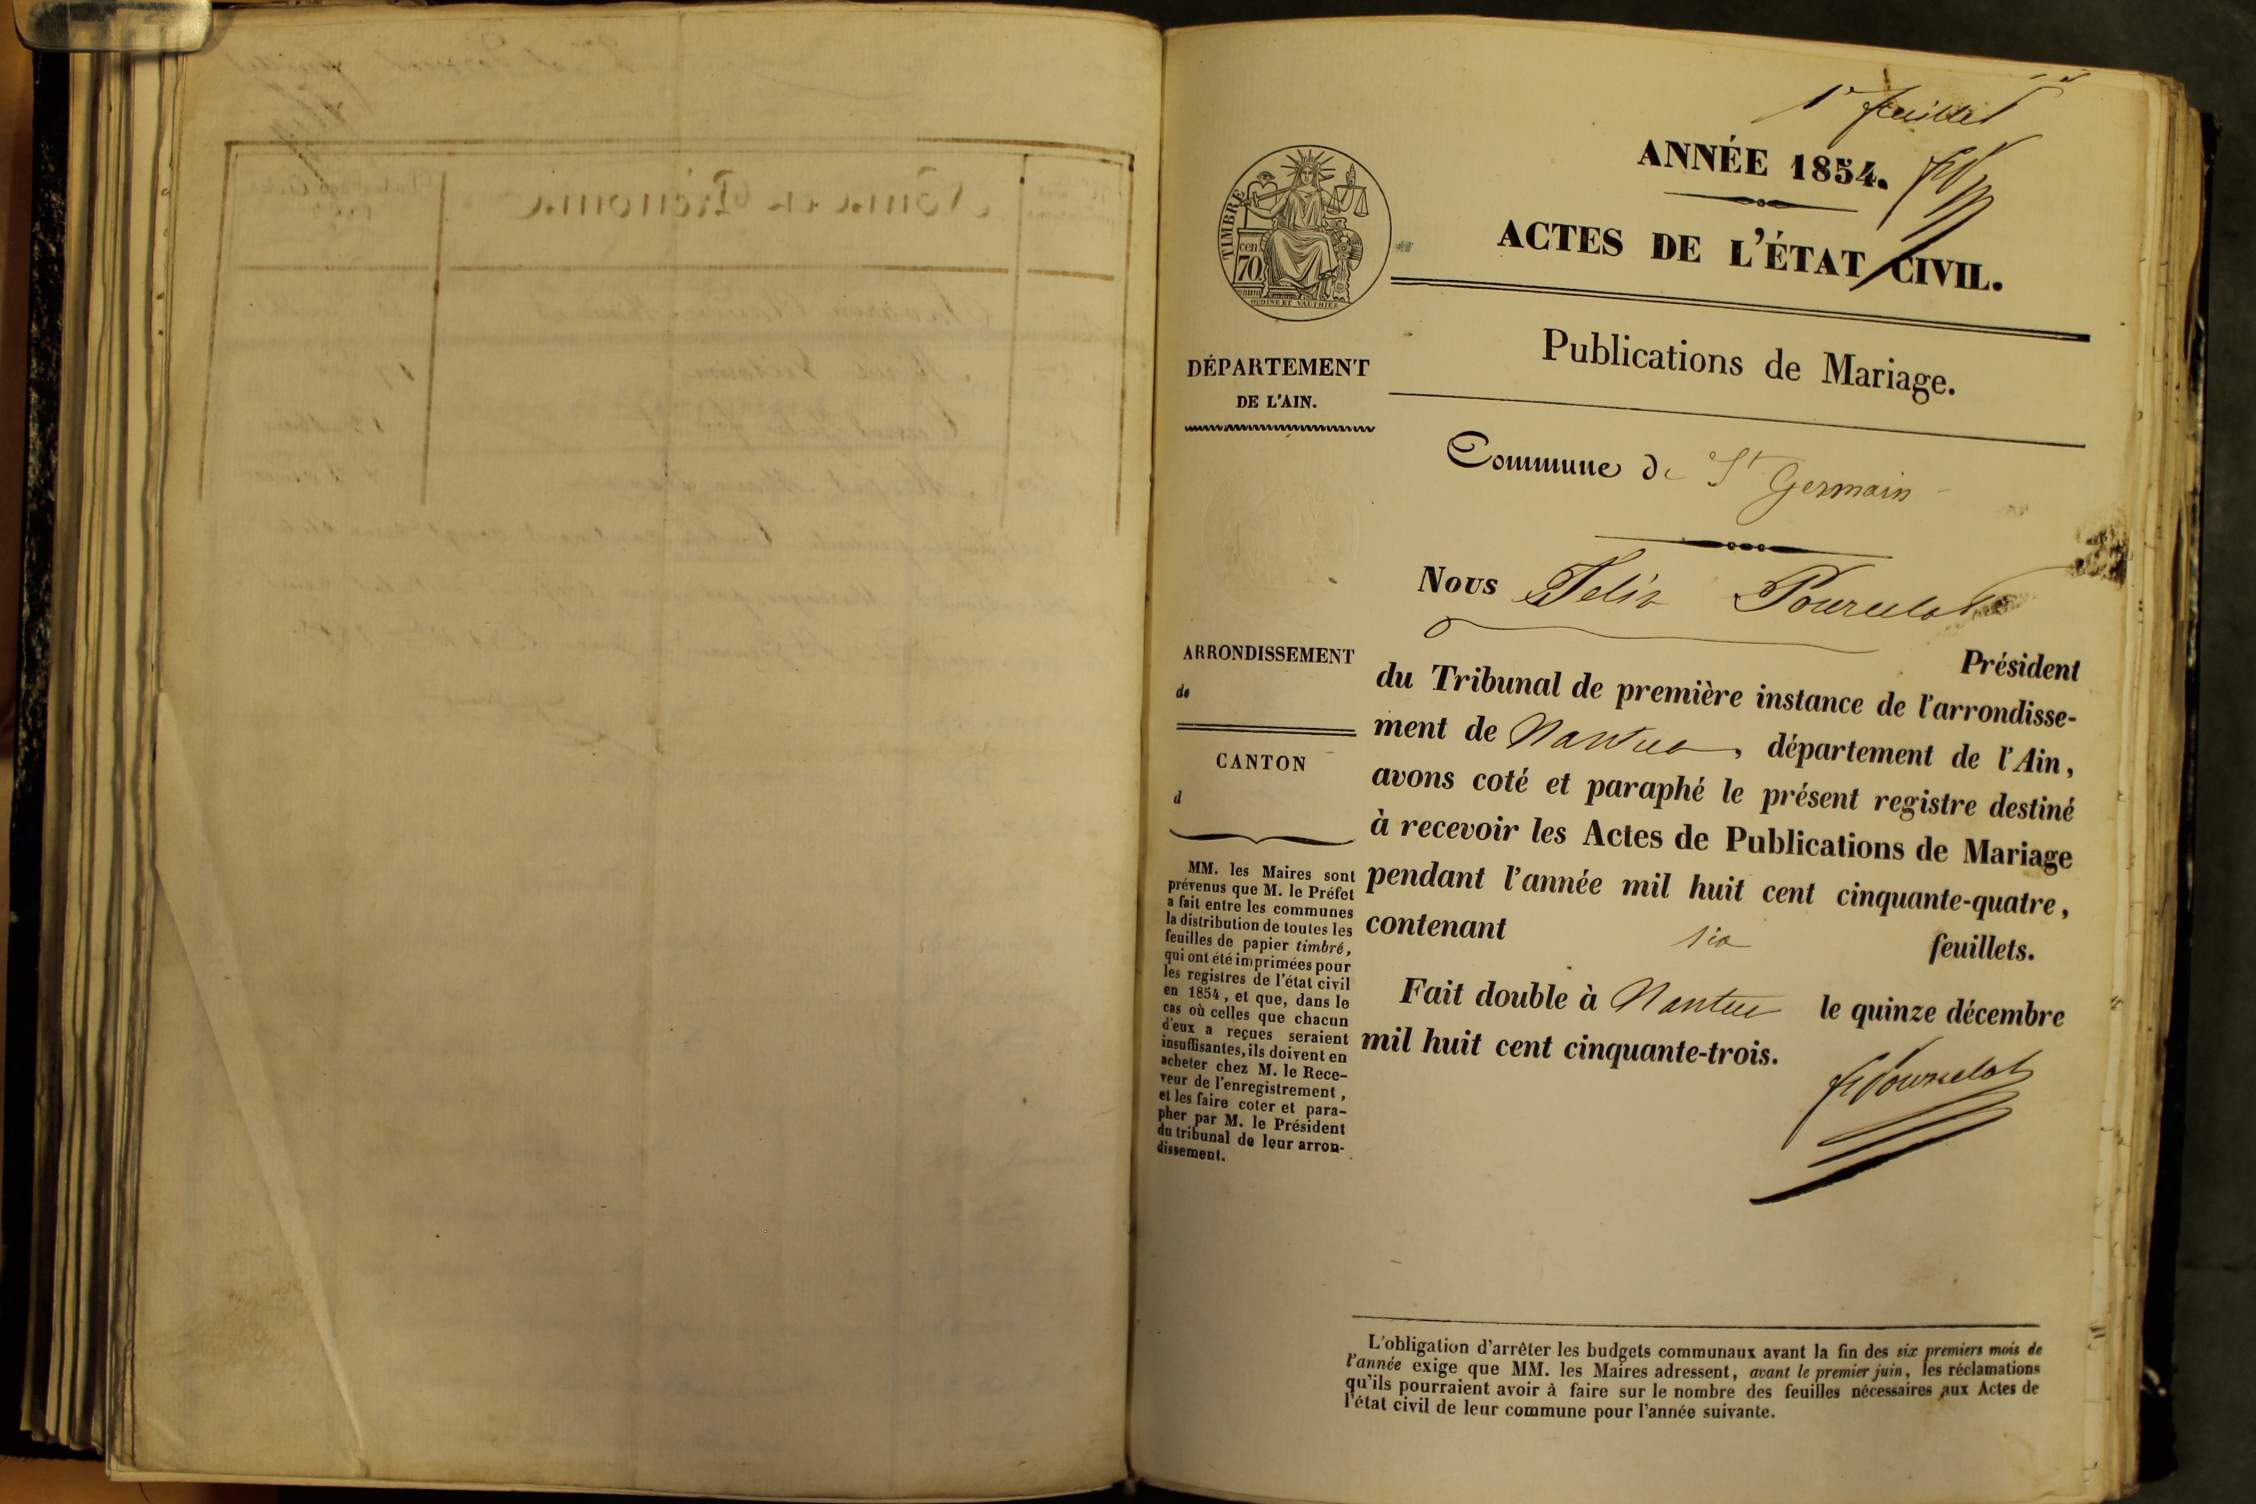 Noms et Prénoms
1er feuillet
ANNÉE 1854.
ACTES DE L'ÉTAT CIVIL.
TIMBRE
70
cen
OUDINE ET VAUTHIER
Publications de Mariage.
DÉPARTEMENT
DE L'AIN.
Commune de St Germain
Nous Félix Pourcelot
Président
du Tribunal de première instance de l'arrondisse-
ment de Nantua, département de l'Ain,
avons coté et paraphé le présent registre destiné
à recevoir les Actes de Publications de Mariage
pendant l'année mil huit cent cinquante-quatre,
contenant six feuillets.
Fait double à Nantua le quinze décembre
mil huit cent cinquante-trois.
FPourcelot
ARRONDISSEMENT
de
CANTON
d
MM. les Maires sont
prévenus que M. le Préfet
a fait entre les communes
la distribution de toutes les
feuilles de papier timbré,
qui ont été imprimées pour
les registres de l'état civil
en 1854, et que, dans le
cas où celles que chacun
d'eux a reçues seraient
insuffisantes, ils doivent en
acheter chez M. le Rece-
veur de l'enregistrement,
et les faire coter et para-
pher par M. le Président
du tribunal de leur arron-
dissement.
L'obligation d'arrêter les budgets communaux avant la fin des six premiers mois de
l'année exige que MM. les Maires adressent, avant le premier juin, les réclamations
qu'ils pourraient avoir à faire sur le nombre des feuilles nécessaires aux Actes de
l'état civil de leur commune pour l'année suivante.